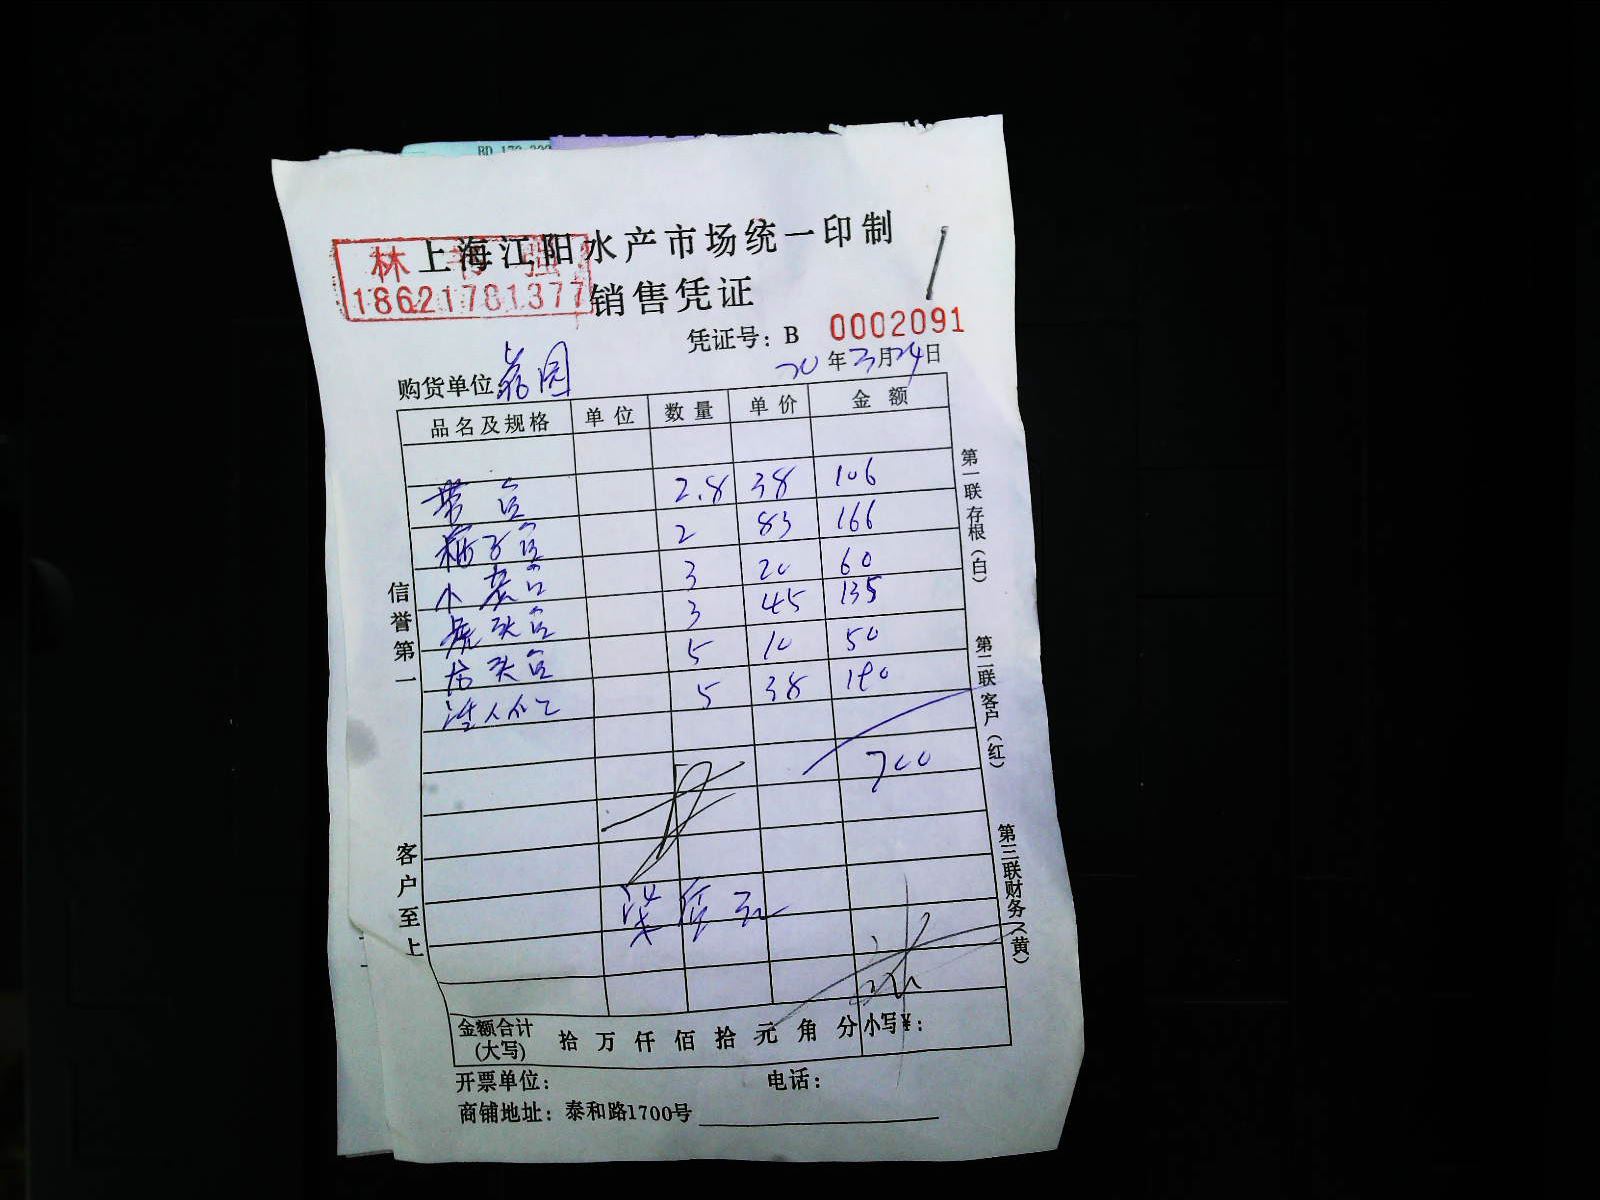 BD 170
上海江阳水产市场统一印制
林 强
18621781377
销售凭证
凭证号: B 0002091
购货单位: 园
20年3月24日
品名及规格 单位 数量 单价 金额
带鱼 2.8 38 106
鱼 2 83 166
小黄鱼 3 20 60
虎头鱼 3 45 135
头鱼 5 10 50
5 38 190
700
金额合计(大写) 拾 万 仟 佰 拾 元 角 分 小写¥:
开票单位: 电话:
商铺地址: 泰和路1700号
信誉第一
客户至上
第一联存根(白)
第二联客户(红)
第三联财务(黄)